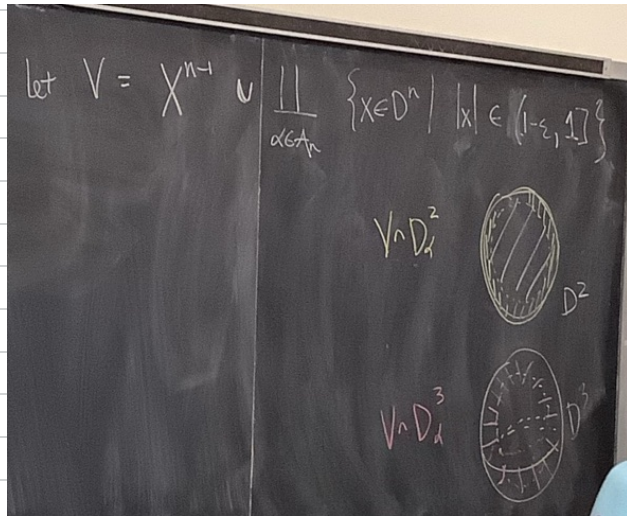 let V = X^{n-1} ∪ ∐_{α∈A_n} {x∈D^n | |x| ∈ (1-ε, 1]}
V∩D_α^2
D^2
V∩D_α^3
D^3